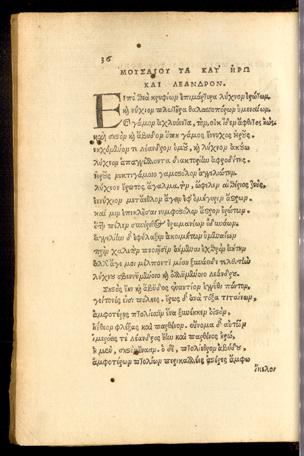 36
ΜΟΥΣΑΙΟΥ ΤΑ ΚΑΘ ΗΡΩ
ΚΑΙ ΛΕΑΝΔΡΟΝ.
Εἰπὲ θεὰ κρυφίων ἐπιμάρτυρα λύχνον ἐρώτων,
καὶ νύχιον πλωτῆρα θαλασσοπόρων ὑμεναίων,
καὶ γάμον ἀχλυόεντα, τὸν οὐκ ἴδεν ἄφθιτος ἠώς,
καὶ σηστὸν καὶ ἄβυδον ὅπη γάμος ἔννυχος ἡροῦς,
νηχόμενόν τε λέανδρον ὁμοῦ, καὶ λύχνον ἀκούω,
λύχνον ἀπαγγέλλοντα διακτορίην ἀφροδίτης,
ἡροῦς νυκτιγάμοιο γαμοστόλον ἀγγελιώτην,
λύχνον ἔρωτος ἄγαλμα, τὸν ὤφελεν αἰθέριος ζεὺς,
ἐννύχιον μετ' ἄεθλον ἄγειν ἐς ὁμήγυριν ἄστρων,
καί μιν ἐπικλῆσαι νυμφοστόλον ἄστρον ἐρώτων,
ὅττι πέλεν συνέριθος ἐρωμανέων ὀδυνάων,
ἀγγελίην δ' ἐφύλαξεν ἀκοιμήτων ὑμεναίων
πρὶν χαλεπὸν πνοιῇσιν ἀήμεναι ἐχθρὸν ἀήτην
ἀλλ' ἄγε μοι μέλποντι μίαν ξυνάειδε τελευτὴν
λύχνου σβεννυμένοιο καὶ ὀλλυμένοιο λεάνδρου.
Σηστὸς ἔην καὶ ἄβυδος ἐναντίον ἐγγύθι πόντου,
γείτονές εἰσι πόληες. ἔρως δ' ἀνὰ τόξα τιταίνων,
ἀμφοτέρῃς πτολίεσσιν ἕνα ξυνέηκεν ὀϊστὸν,
ἠΐθεον φλέξας καὶ παρθένον. οὔνομα δ' αὐτῶν
ἱμερόεις τε λέανδρος ἔην καὶ παρθένος ἡρώ,
ἡ μὲν, σηστὸν ἔναιεν. ὁ δὲ, πτολίεθρον ἀβύδου,
ἀμφοτέρων πτολίων περικαλλέες ἀστέρες ἄμφω
ἴκελοι